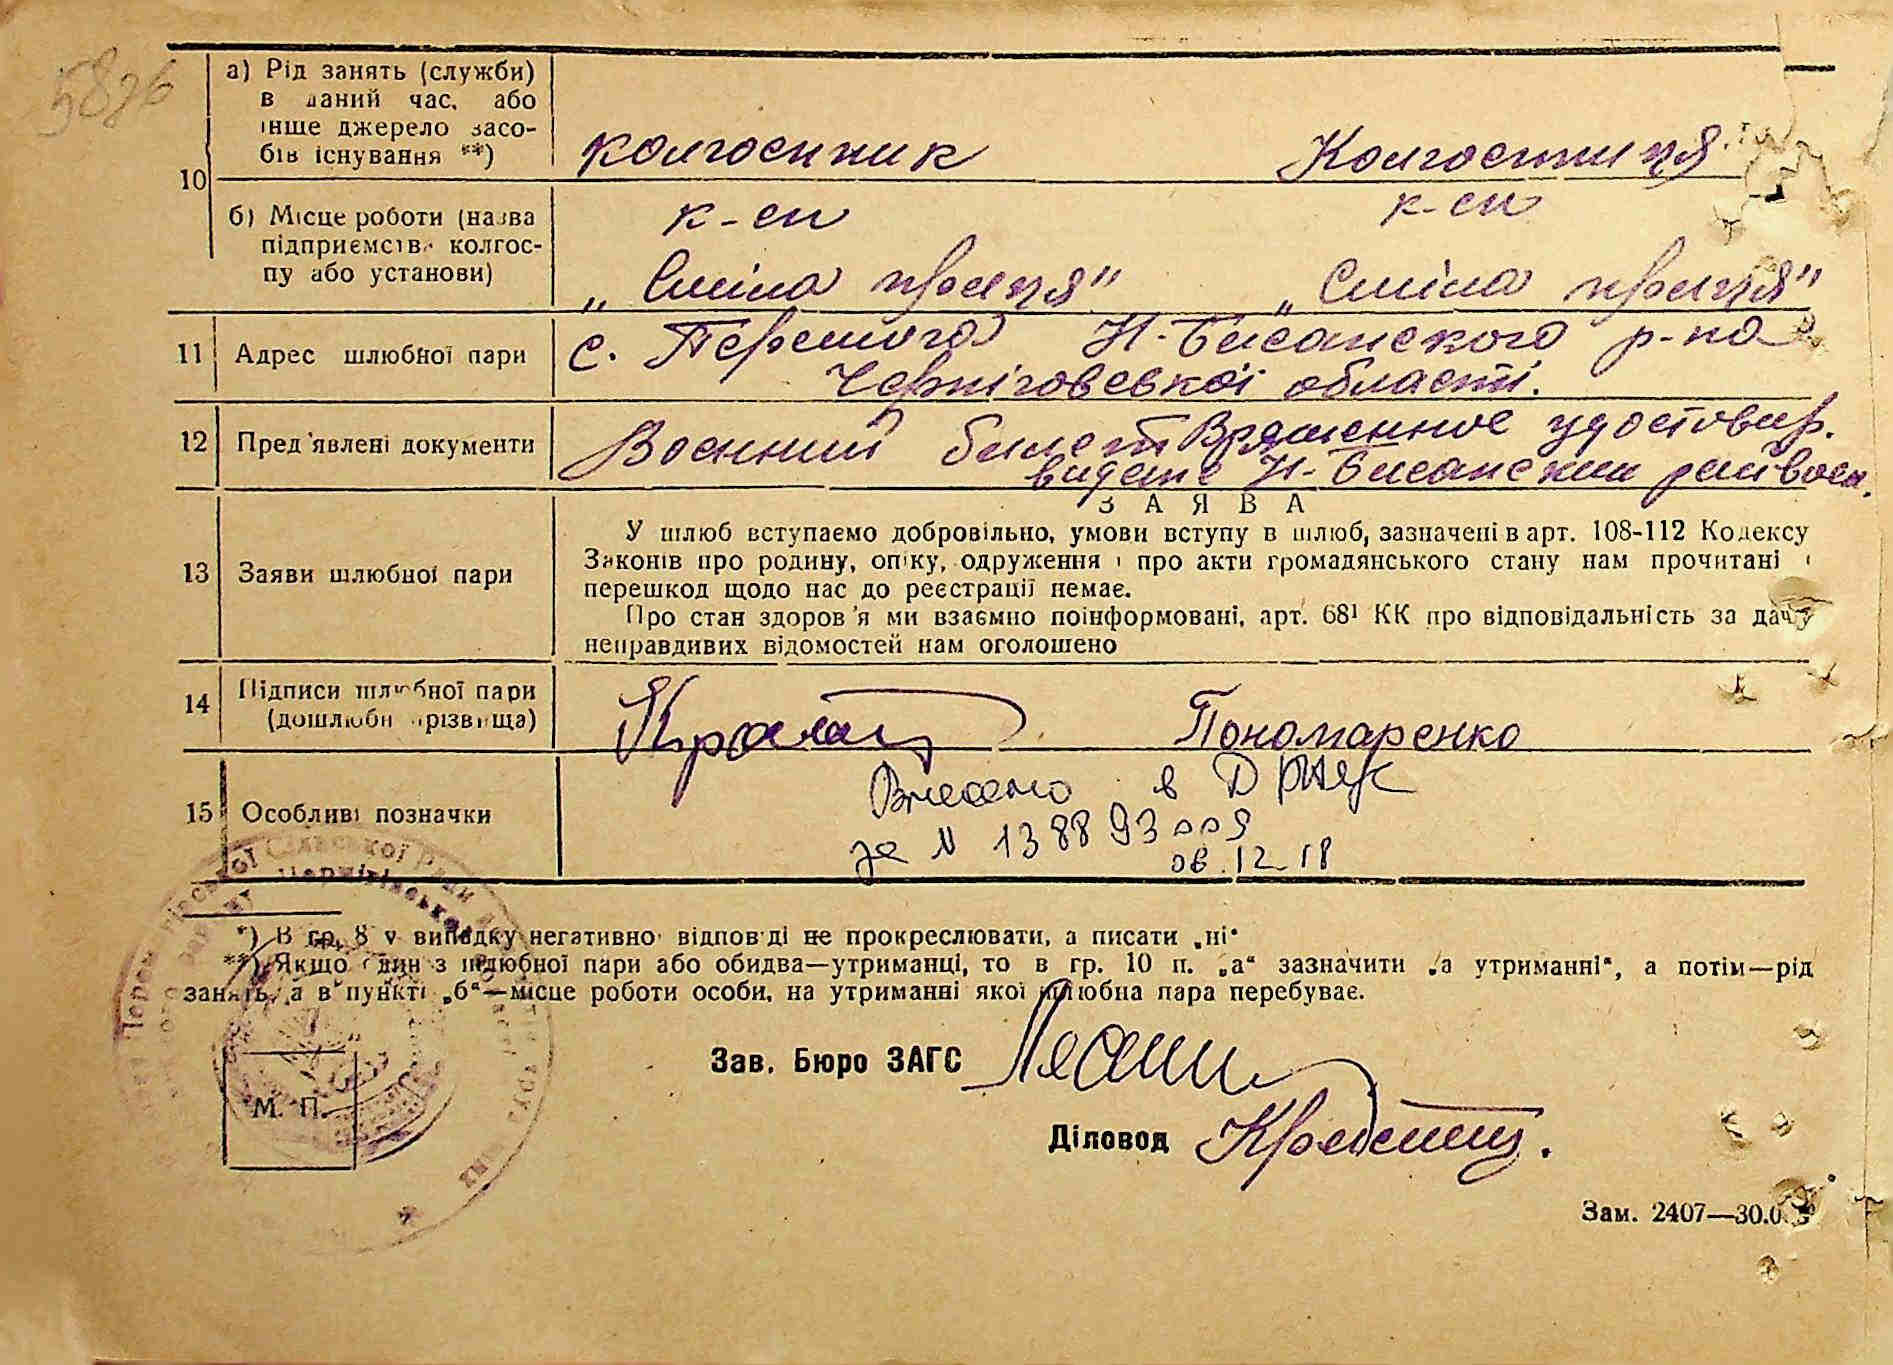 10
а) Рід занять (служби)
в даний час, або
інше джерело засо-
бів існування **)
колгоспник Колгоспниця
б) Місце роботи (назва
підприємства колгос-
пу або установи)
к-сп к-сп
„Сміла праця" „Сміла праця"
11 Адрес шлюбної пари
с. Перемога Н-Басанского р-на
Чернігоівської області.
12 Пред'явлені документи
Воєнний билет Временное удостовир.
видане Н-Басанским райвоен.
13 Заяви шлюбної пари
ЗАЯВА
У шлюб вступаємо добровільно, умови вступу в шлюб, зазначені в арт. 108-112 Кодексу
Законів про родину, опіку, одруження і про акти громадянського стану нам прочитані і
перешкод щодо нас до реєстрації немає.
Про стан здоров'я ми взаємно поінформовані, арт. 68¹ КК про відповідальність за дачу
неправдивих відомостей нам оголошено
14 Підписи шлюбної пари
(дошлюбні прізвища)
Пономаренко
15 Особливі позначки
Внесено в ДРАЦС
за N 138893009
06.12.18
*) В гр. 8 у випадку негативної відповіді не прокреслювати, а писати „ні"
**) Якщо один з шлюбної пари або обидва—утриманці, то в гр. 10 п. „а" зазначити „а утриманні", а потім—рід
занять, а в пункті „б"—місце роботи особи, на утриманні якої шлюбна пара перебуває.
Зав. Бюро ЗАГС
М. П.
Діловод
Зам. 2407—30.0